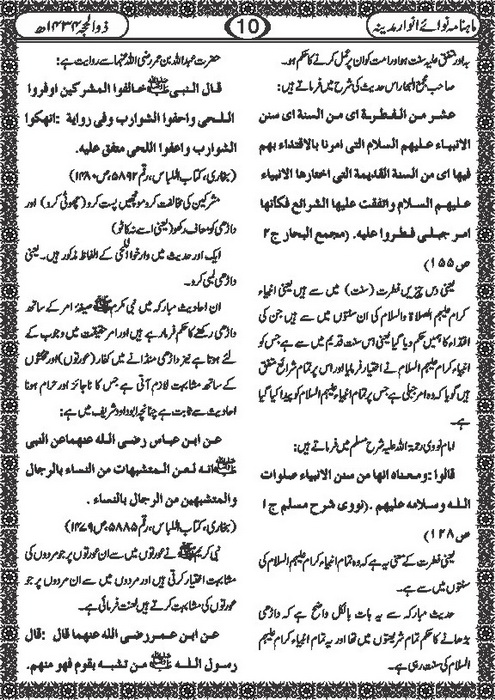 ماہنامہ نوائے انوار مدینہ
10
ذوالحجہ ۱۴۳۴ھ
ہے اور متفق علیہ سنت ہوا اور امت کو ان پر عمل کرنے کو کہا ہے۔
صاحب مجمع البحار اس حدیث کی شرح میں فرماتے ہیں:
عشر من الفطرة ای من السنة ای سنن
الانبیاء علیهم السلام التی امرنا بالاقتداء بهم
فیها ای من السنة القدیمة التی اختارها الانبیاء
علیهم السلام واتفقت علیها الشرائع فکأنها
امر جبلی فطروا علیه. (مجمع البحار ج ۲
ص ۱۵۵)
یعنی دس چیزیں فطرت (سنت) میں سے ہیں یعنی انبیاء
کرام علیہم الصلاۃ والسلام کی ان سنتوں میں سے ہیں جن کی
اقتداء کا ہمیں حکم دیا گیا یعنی اس سنت قدیم میں سے ہے جس کو
انبیاء کرام علیہم السلام نے اختیار فرمایا اور اس پر تمام شرائع متفق
ہیں گویا کہ وہ امر جبلی ہے جس پر تمام انبیاء علیہم السلام کو پیدا کیا گیا
ہے۔
امام نووی رحمۃ اللہ علیہ شرح مسلم میں فرماتے ہیں:
قالوا: ومعناه انها من سنن الانبیاء صلوات
الله وسلامه علیهم. (نووی شرح مسلم ج ۱
ص ۱۲۸)
یعنی فطرت کے معنی یہ ہے کہ وہ تمام انبیاء کرام علیہم السلام کی
سنتوں میں سے ہے۔
حدیث مبارکہ سے یہ بات بالکل واضح ہے کہ داڑھی
بڑھانے کا حکم تمام شریعتوں میں تھا اور یہ تمام انبیاء کرام علیہم
السلام کی سنت رہی ہے۔
حضرت عبداللہ بن عمر رضی اللہ عنہما سے روایت ہے:
قال النبی ﷺ خالفوا المشرکین اوفروا
اللحی واحفوا الشوارب وفی روایة :انهکوا
الشوارب واعفوا اللحی متفق علیه.
(بخاری، کتاب اللباس، رقم ۵۸۹۲، ص ۱۴۸۰)
مشرکین کی مخالفت کرو مونچھیں پست کرو (چھوٹی کرو) اور
داڑھی کو معاف رکھو (یعنی اسے نہ کاٹو)
ایک اور حدیث میں وارخوا اللحی کے الفاظ مذکور ہیں۔ یعنی
داڑھی لمبی کرو۔
ان احادیث مبارکہ میں نبی مکرم ﷺ صیغۂ امر کے ساتھ
داڑھی رکھنے کا حکم فرما رہے ہیں اور امر حقیقت میں وجوب کے
لئے ہوتا ہے نیز داڑھی منڈانے میں کفار (عورتوں) اور مخنثوں
کے ساتھ مشابہت لازم آتی ہے جس کا ناجائز اور حرام ہونا
احادیث سے ثابت ہے چنانچہ ابوداود شریف میں ہے:
عن ابن عباس رضی الله عنهما عن النبی
ﷺ انه لعن المتشبهات من النساء بالرجال
والمتشبهین من الرجال بالنساء .
(بخاری، کتاب اللباس، رقم ۵۸۸۵، ص ۱۴۷۹)
نبی کریم ﷺ نے عورتوں میں سے ان عورتوں پر جو مردوں کی
مشابہت اختیار کرتی ہیں اور مردوں میں سے ان مردوں پر جو
عورتوں کی مشابہت کرتے ہیں لعنت فرمائی ہے۔
عن ابن عمر رضی الله عنهما قال :قال
رسول الله ﷺ من تشبه بقوم فهو منهم.